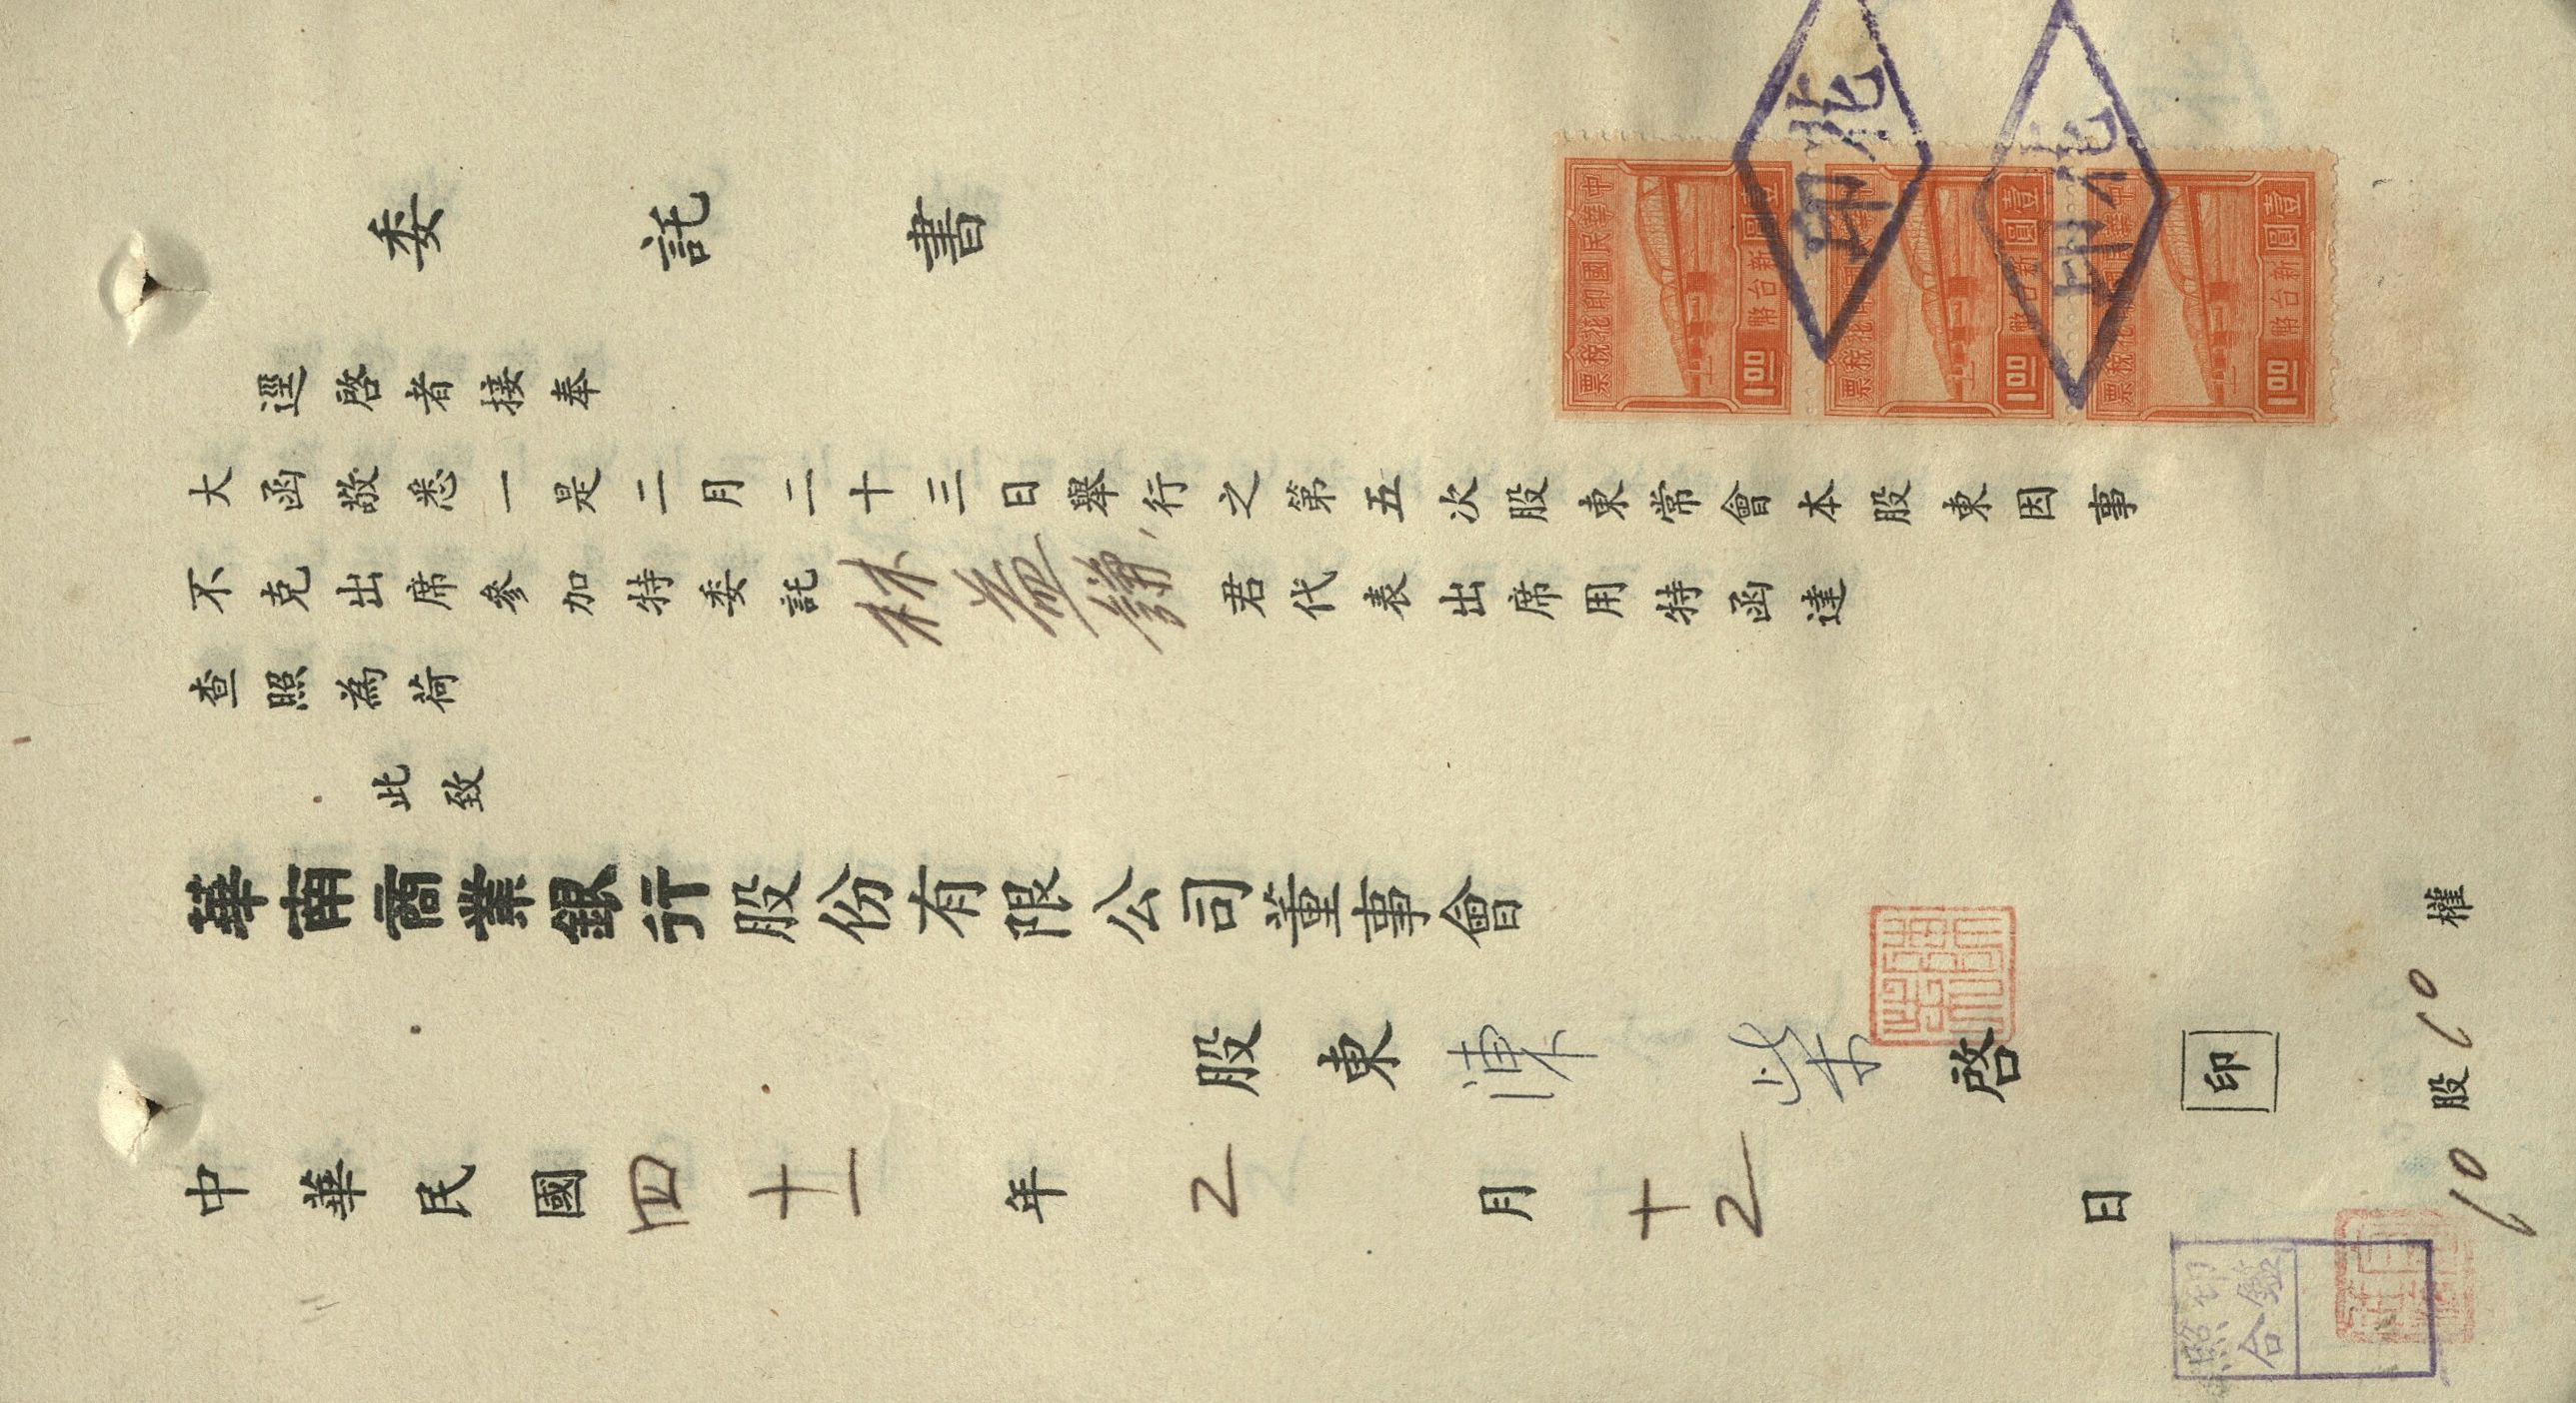 委託書
逕啓者接奉
大函敬悉一是二月二十三日舉行之第五次股東常會本股東因事
不克出席參加特委託林 君代表出席用特函達
查照為荷
此致
華南商業銀行股份有限公司董事會
股東陳 柴 啓 印
10股10權
中華民國四十一年2月十2日
中華民國印花稅票
壹圓
新台幣
1.00
中華民國印花稅票
壹圓
新台幣
1.00
中華民國印花稅票
壹圓
新台幣
1.00
印鑑
照合